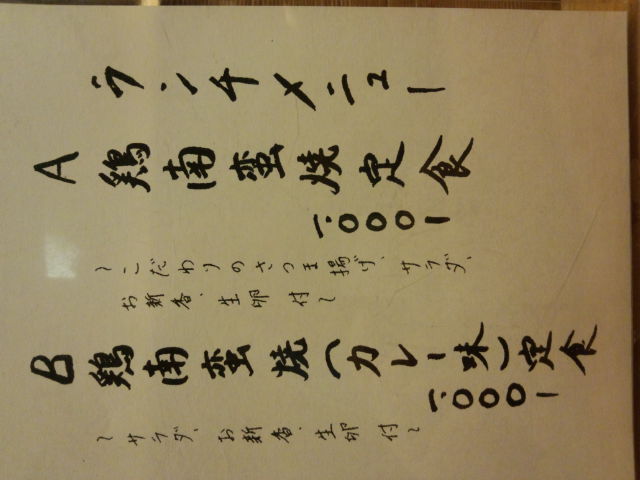 ランチメニュー
A 鶏南蛮焼定食
一、〇〇〇ー
〜こだわりのさつま揚げ、サラダ、
お新香、生卵付〜
B 鶏南蛮焼(カレー味)定食
一、〇〇〇ー
〜サラダ、お新香、生卵付〜